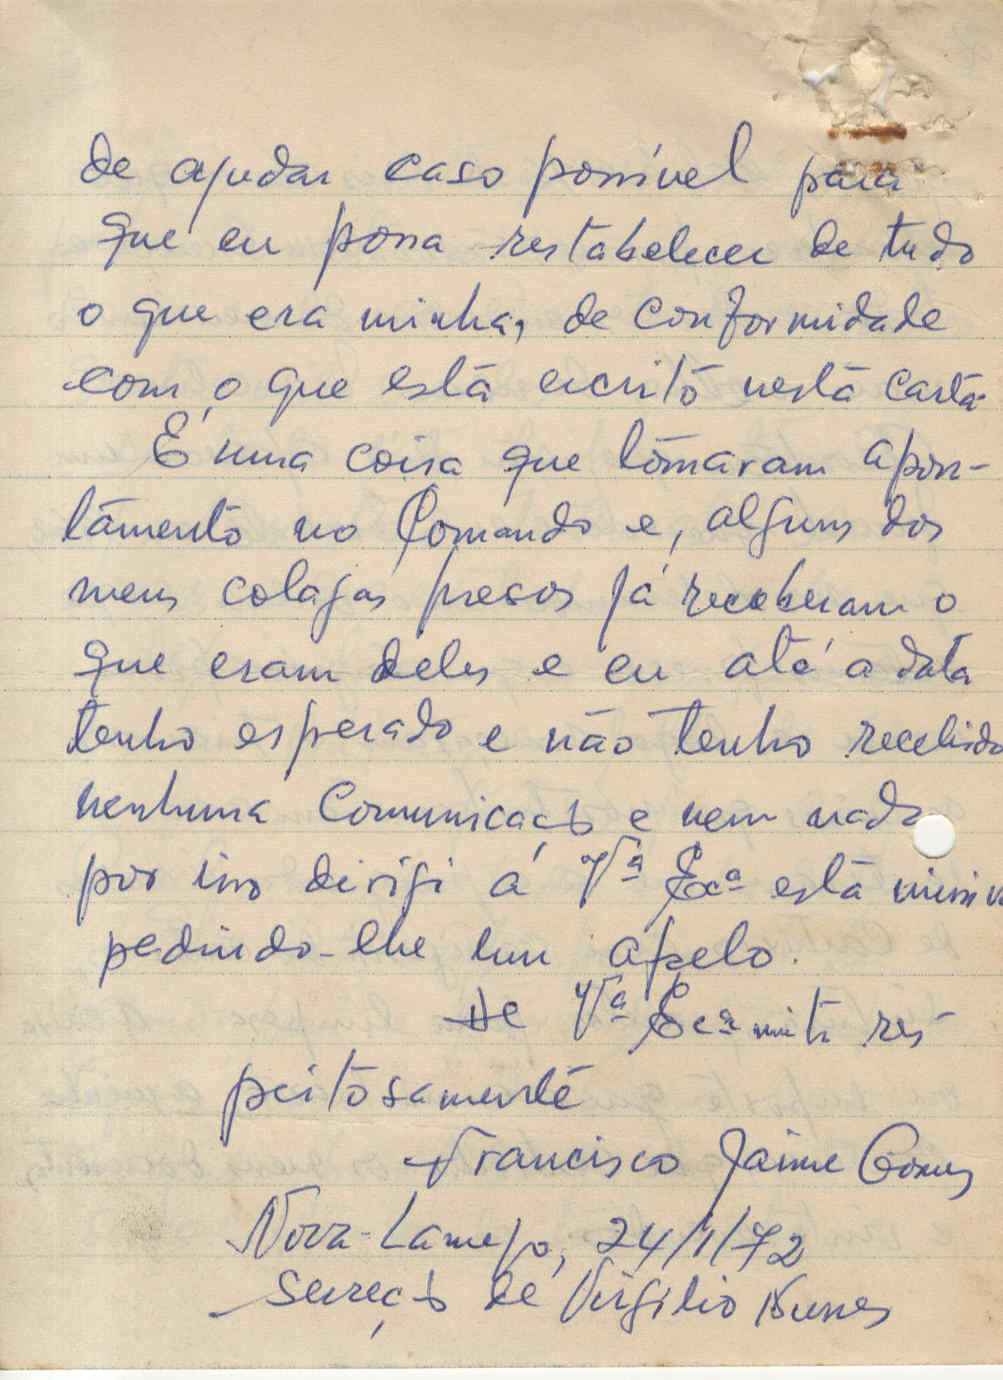 de ajudar caso possível para
que eu possa restabelecer de tudo
o que era minha, de conformidade
com o que está escrito nesta carta.
É uma coisa que tomaram apon-
tamento no Comando e, alguns dos
meus colagas presos já receberam o
que eram deles e eu até a data
tenho esperado e não tenho recebido
nenhuma comunicação e nem nada
por isso dirigi á Vª Exª está
pedindo-lhe um apelo.
De Vª Exª muito res
peitosamente
Francisco Jaime Gomes
Nova-Lamego, 24/1/72
de Virgilio Nunes